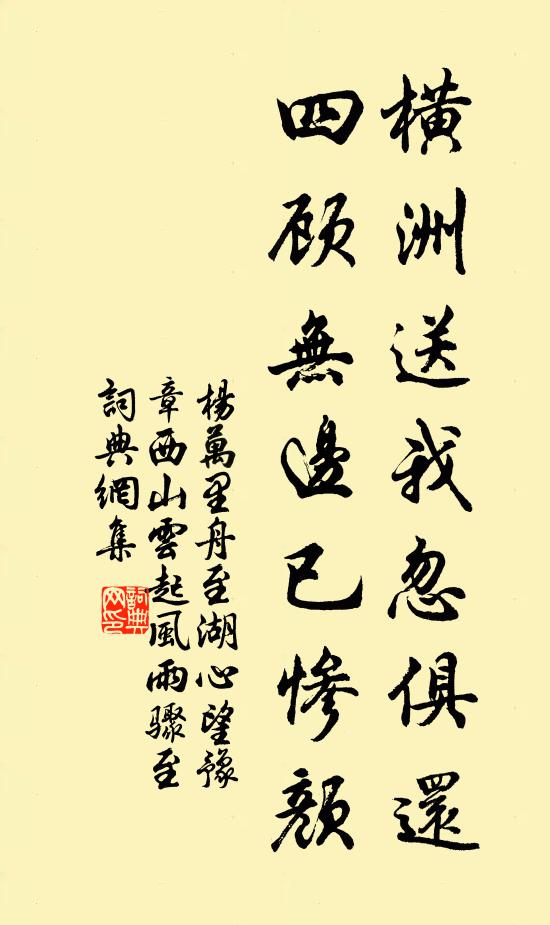 橫洲送我忽俱還
四顧無邊已慘顏
楊萬里舟至湖心望豫
章西山雲起風雨驟至
詞典網集
詞典网印